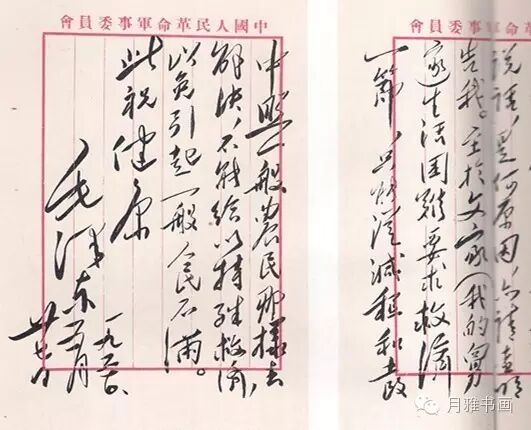 革命軍事委員會
说话，是何原因，亦请查明
告我。至於文家（我的舅
家）生活困难要求救濟
一節，只能從減租和土改
中國人民革命軍事委員會
中照一般農民那樣去
解決，不能給以特殊救濟，
以免引起一般人民不滿。
此祝健康
毛泽东
一九五〇、
五月
廿七日
月雅书画